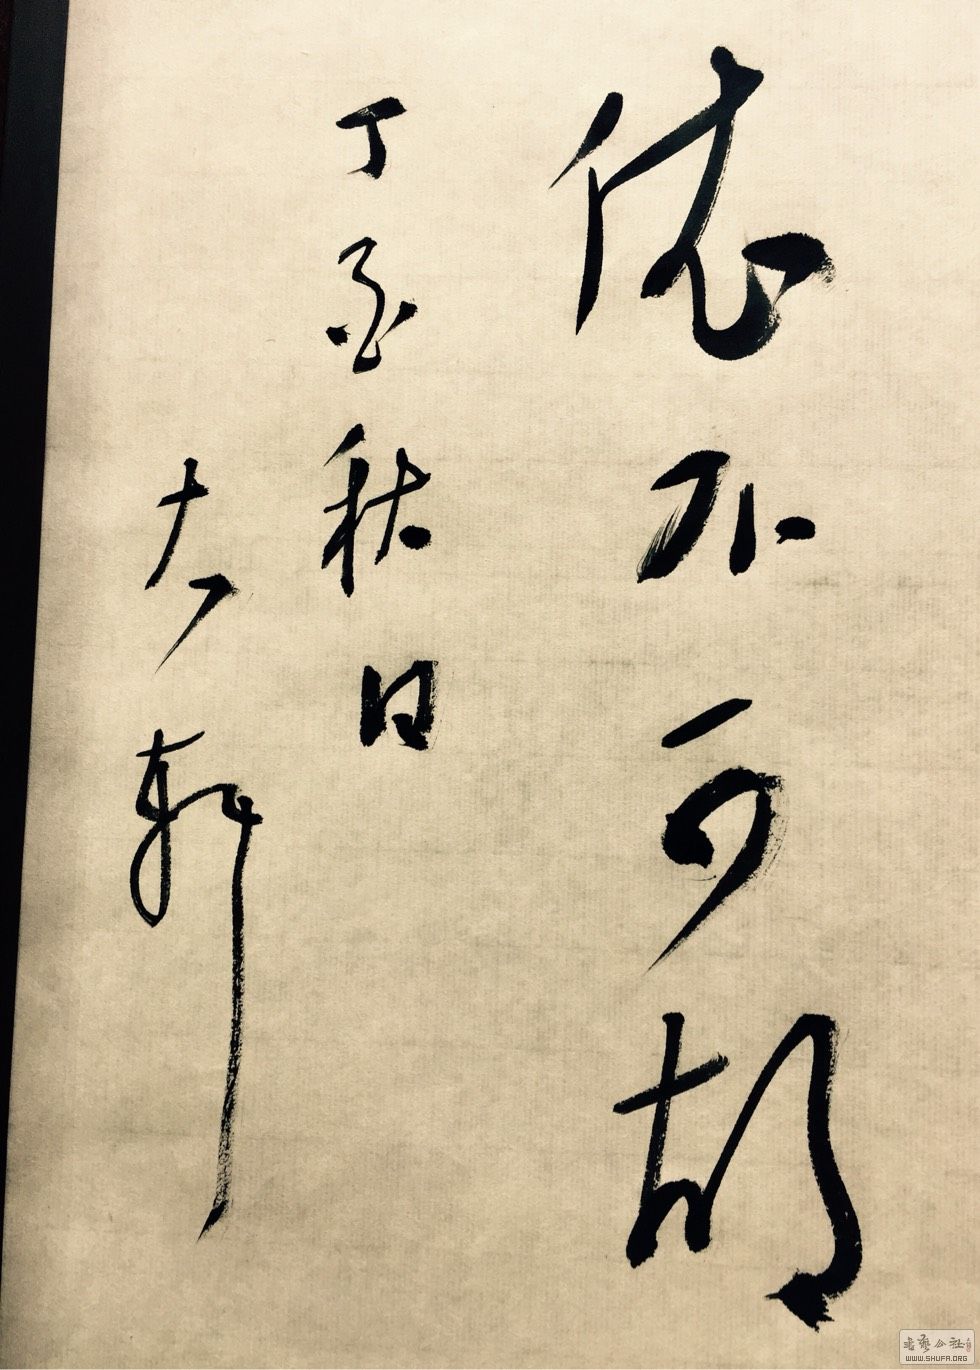 不可胡
丁酉秋日
大轩
书艺公社
WWW.SHUFA.ORG